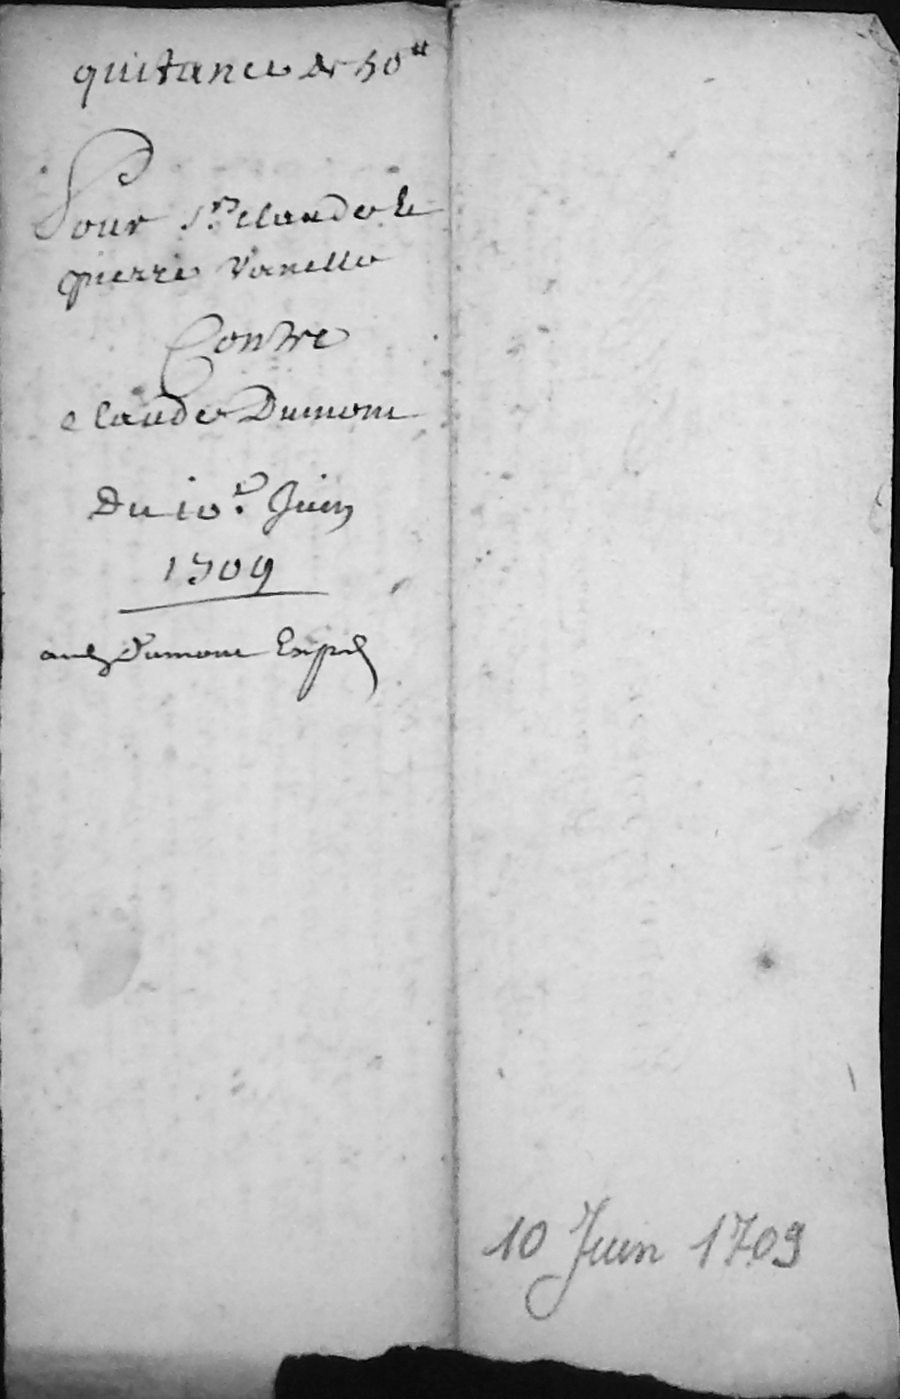 quitance de 50ᵗᵗ
Pour Sʳ Claude &
pierre Vanelle
Contre
Claude Dumont
Du 10ᵉ. Juin
1709
Dumont
10 Juin 1709